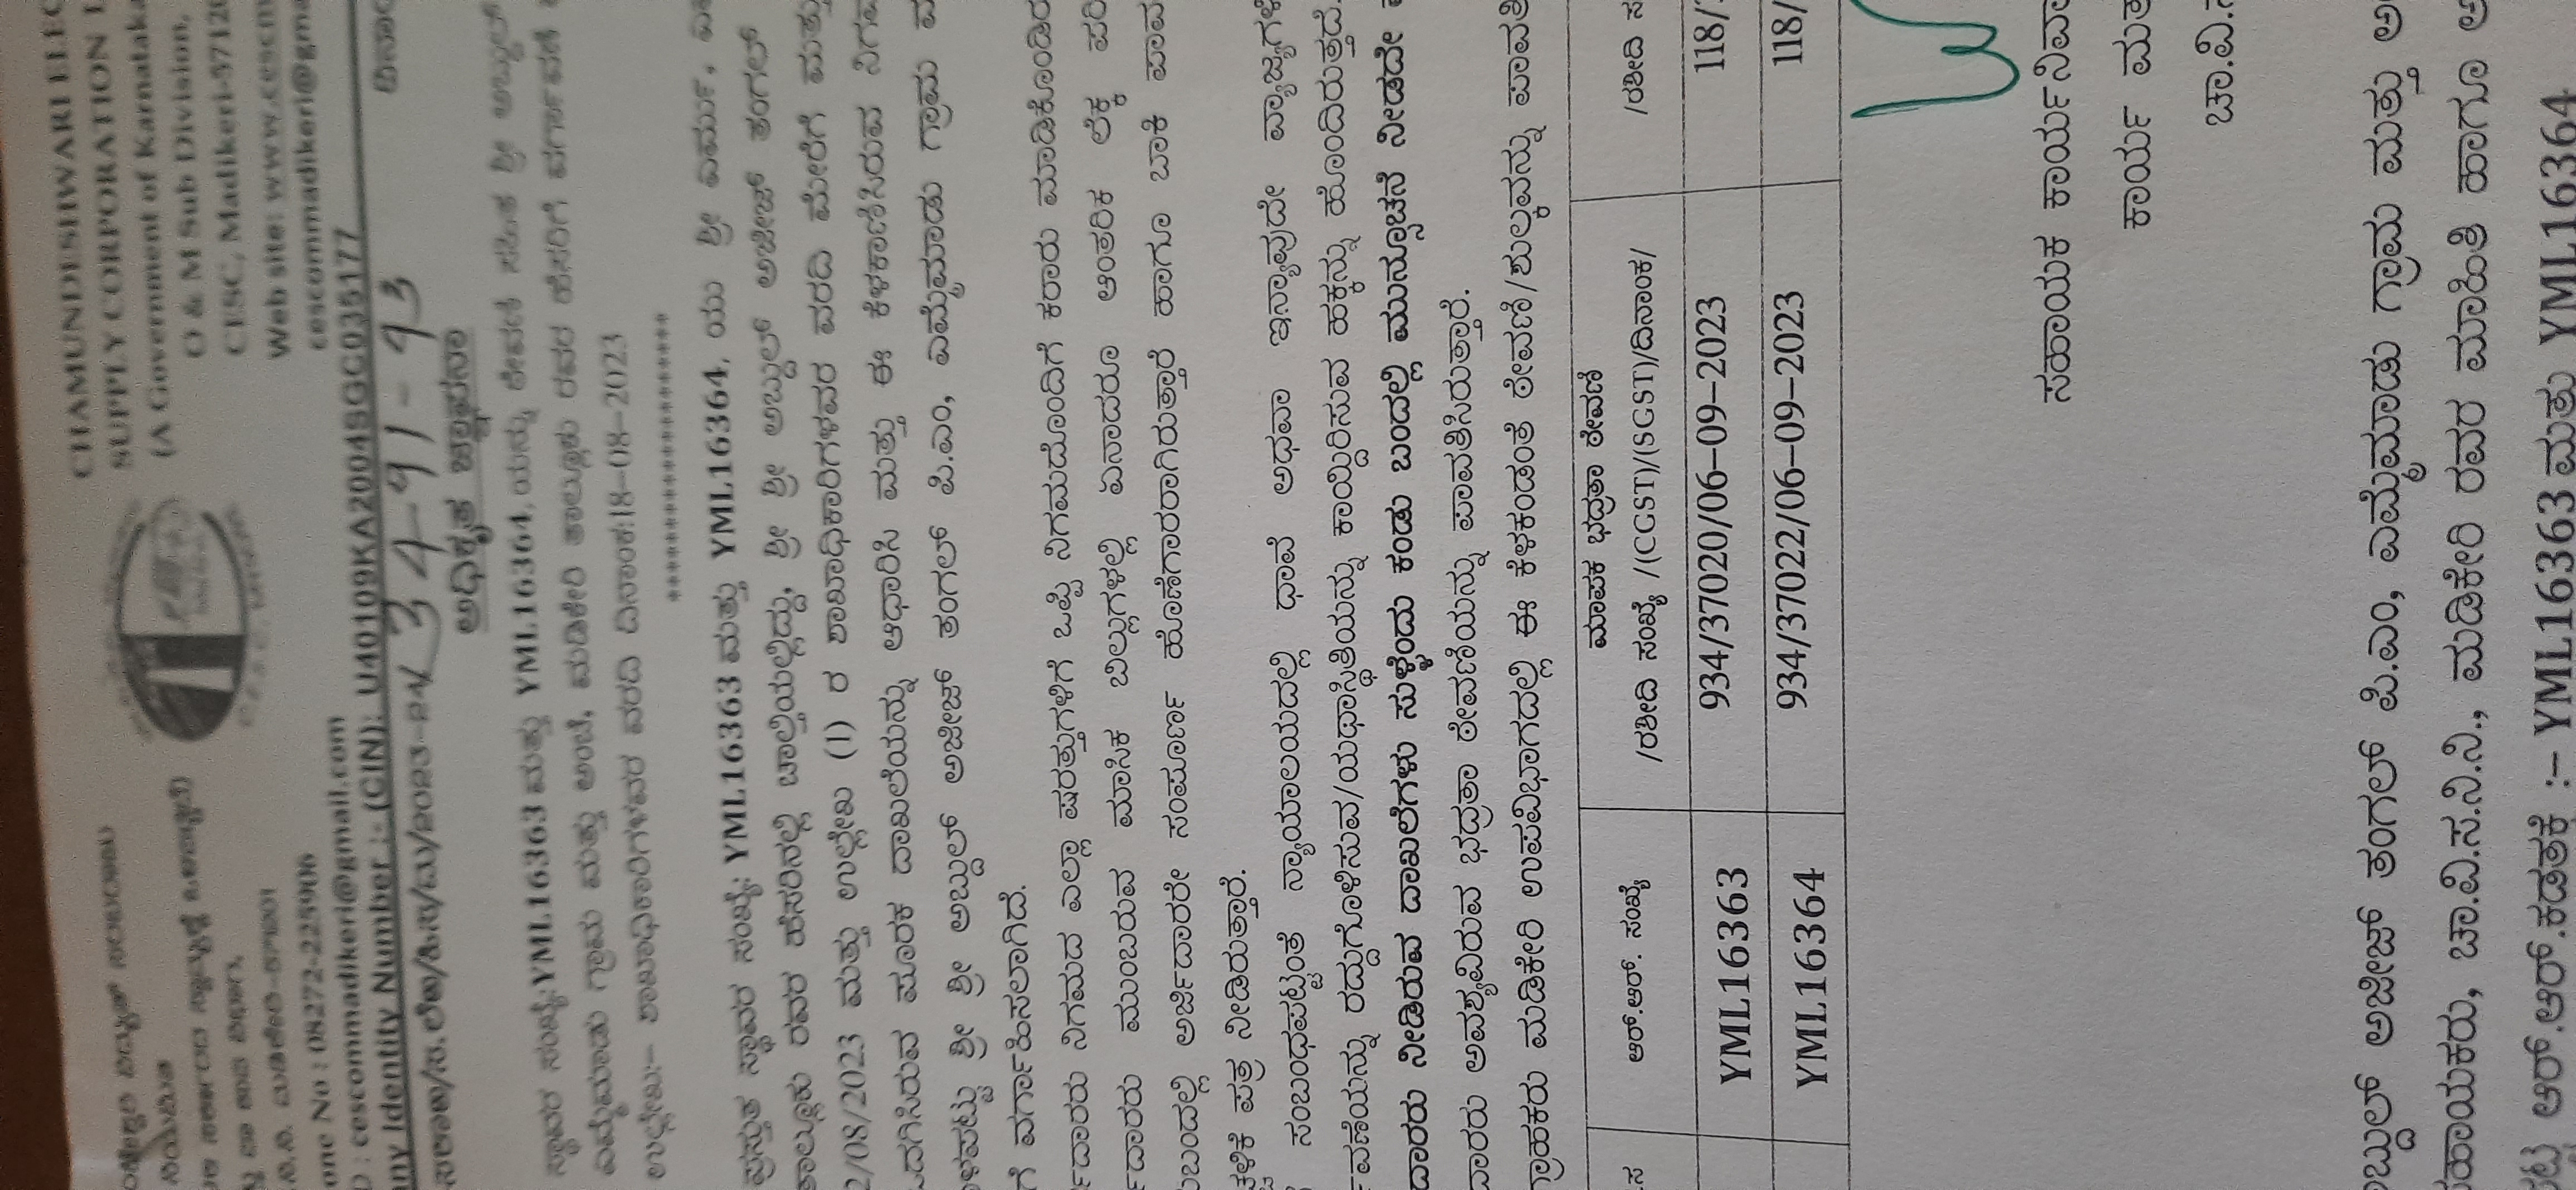 CHAMUNDESHWARI ELEC
SUPPLY CORPORATION
(A Government of Karnataka
O & M Sub Division,
CESC, Madikeri-57120
Web site: www.cescm
cescommadikeri@gma
one No : 08272-225906
: cescommadikeri@gmail.com
any Identity Number : (CIN): U40109KA2004SGC035177
3491-93
ಅಧಿಕೃತ ಜ್ಞಾಪನಾ
ಸ್ಥಾವರ ಸಂಖ್ಯೆ:YML16363 ಮತ್ತು YML16364, ಯನ್ನು ಠೇವಣಿ ಸಹಿತ ಶ್ರೀ ಅಬ್ದುಲ್
ಎಮ್ಮೆಮಾಡು ಗ್ರಾಮ ಮತ್ತು ಅಂಚೆ, ಮಡಿಕೇರಿ ತಾಲ್ಲೂಕು ರವರ ಹೆಸರಿಗೆ ವರ್ಗಾವಣೆ
ಉಲ್ಲೇಖ:- ಶಾಖಾಧಿಕಾರಿಗಳವರ ವರದಿ ದಿನಾಂಕ:18-08-2023
ಪ್ರಸ್ತುತ ಸ್ಥಾವರ ಸಂಖ್ಯೆ: YML16363 ಮತ್ತು YML16364, ಯು ಶ್ರೀ ಎರ್ಮು,
ತಾಲ್ಲೂಕು ರವರ ಹೆಸರಿನಲ್ಲಿ ಚಾಲ್ತಿಯಲ್ಲಿದ್ದು, ಶ್ರೀ ಶ್ರೀ ಅಬ್ದುಲ್ ಅಜೀಜ್ ತಂಗಲ್
2/08/2023 ಮತ್ತು ಉಲ್ಲೇಖ (1) ರ ಶಾಖಾಧಿಕಾರಿಗಳವರ ವರದಿ ಮೇರೆಗೆ ಮತ್ತು
ಒದಗಿಸಿರುವ ಪೂರಕ ದಾಖಲೆಯನ್ನು ಆಧಾರಿಸಿ ಮತ್ತು ಈ ಕೆಳಕಾಣಿಸಿರುವ ನಿಗಮ
ಳಪಟ್ಟು ಶ್ರೀ ಶ್ರೀ ಅಬ್ದುಲ್ ಅಜೀಜ್ ತಂಗಲ್ ಪಿ.ಎಂ, ಎಮ್ಮೆಮಾಡು ಗ್ರಾಮ ಮ
ಗೆ ವರ್ಗಾಹಿಸಲಾಗಿದೆ.
ರ್ಜಿದಾರರು ನಿಗಮದ ಎಲ್ಲಾ ಷರತ್ತುಗಳಿಗೆ ಒಪ್ಪಿ ನಿಗಮದೊಂದಿಗೆ ಕರಾರು ಮಾಡಿಕೊಂಡಿರ
ರ್ಜಿದಾರರು ಮುಂಬರುವ ಮಾಸಿಕ ಬಿಲ್ಲುಗಳಲ್ಲಿ ಏನಾದರೂ ಆಂತರಿಕ ಲೆಕ್ಕ ಪರಿ
ಬಂದಲ್ಲಿ ಅರ್ಜಿದಾರರೇ ಸಂಪೂರ್ಣ ಹೊಣೆಗಾರರಾಗಿರುತ್ತಾರೆ ಹಾಗೂ ಬಾಕಿ ಪಾವ
ಚ್ಚಳಿಕೆ ಪತ್ರ ನೀಡಿರುತ್ತಾರೆ.
ಸಂಬಂಧಪಟ್ಟಂತೆ ನ್ಯಾಯಾಲಯದಲ್ಲಿ ಧಾವೆ ಅಥವಾ ಇನ್ಯಾವುದೇ ವ್ಯಾಜ್ಯಗಳ
ರ್ವಣೆಯನ್ನು ರದ್ದುಗೊಳಿಸುವ/ಯಥಾಸ್ಥಿತಿಯನ್ನು ಕಾಯ್ದಿರಿಸುವ ಹಕ್ಕನ್ನು ಹೊಂದಿರುತ್ತದೆ.
ದಾರರು ನೀಡಿರುವ ದಾಖಲೆಗಳು ಸುಳ್ಳೆಂದು ಕಂಡು ಬಂದಲ್ಲಿ ಮುನ್ಸೂಚನೆ ನೀಡದೇ
ದಾರರು ಅವಶ್ಯವಿರುವ ಭದ್ರತಾ ಠೇವಣಿಯನ್ನು ಪಾವತಿಸಿರುತ್ತಾರೆ.
ಗ್ರಾಹಕರು ಮಡಿಕೇರಿ ಉಪವಿಭಾಗದಲ್ಲಿ ಈ ಕೆಳಕಂಡಂತೆ ಠೇವಣಿ/ಶುಲ್ಕವನ್ನು ಪಾವತಿ
ಆರ್.ಆರ್. ಸಂಖ್ಯೆ ಮಾಪಕ ಭದ್ರತಾ ಠೇವಣಿ
/ರಶೀದಿ ಸಂಖ್ಯೆ /(CGST)/(SGST)/ದಿನಾಂಕ/ /ರಶೀದಿ ಸ
YML16363 934/37020/06-09-2023 118/
YML16364 934/37022/06-09-2023 118/
ಸಹಾಯಕ ಕಾರ್ಯನಿರ್ವಾ
ಕಾರ್ಯ ಮತ
ಚಾ.ವಿ.ಸ
ಬ್ದುಲ್ ಅಜೀಜ್ ತಂಗಲ್ ಪಿ.ಎಂ, ಎಮ್ಮೆಮಾಡು ಗ್ರಾಮ ಮತ್ತು ಅ
ಹಾಯಕರು, ಚಾ.ವಿ.ಸ.ನಿ.ನಿ., ಮಡಿಕೇರಿ ರವರ ಮಾಹಿತಿ ಹಾಗೂ ಅ
ಆರ್.ಆರ್.ಕಡತಕ್ಕೆ :- YML16363 ಮತ್ತು YML16364